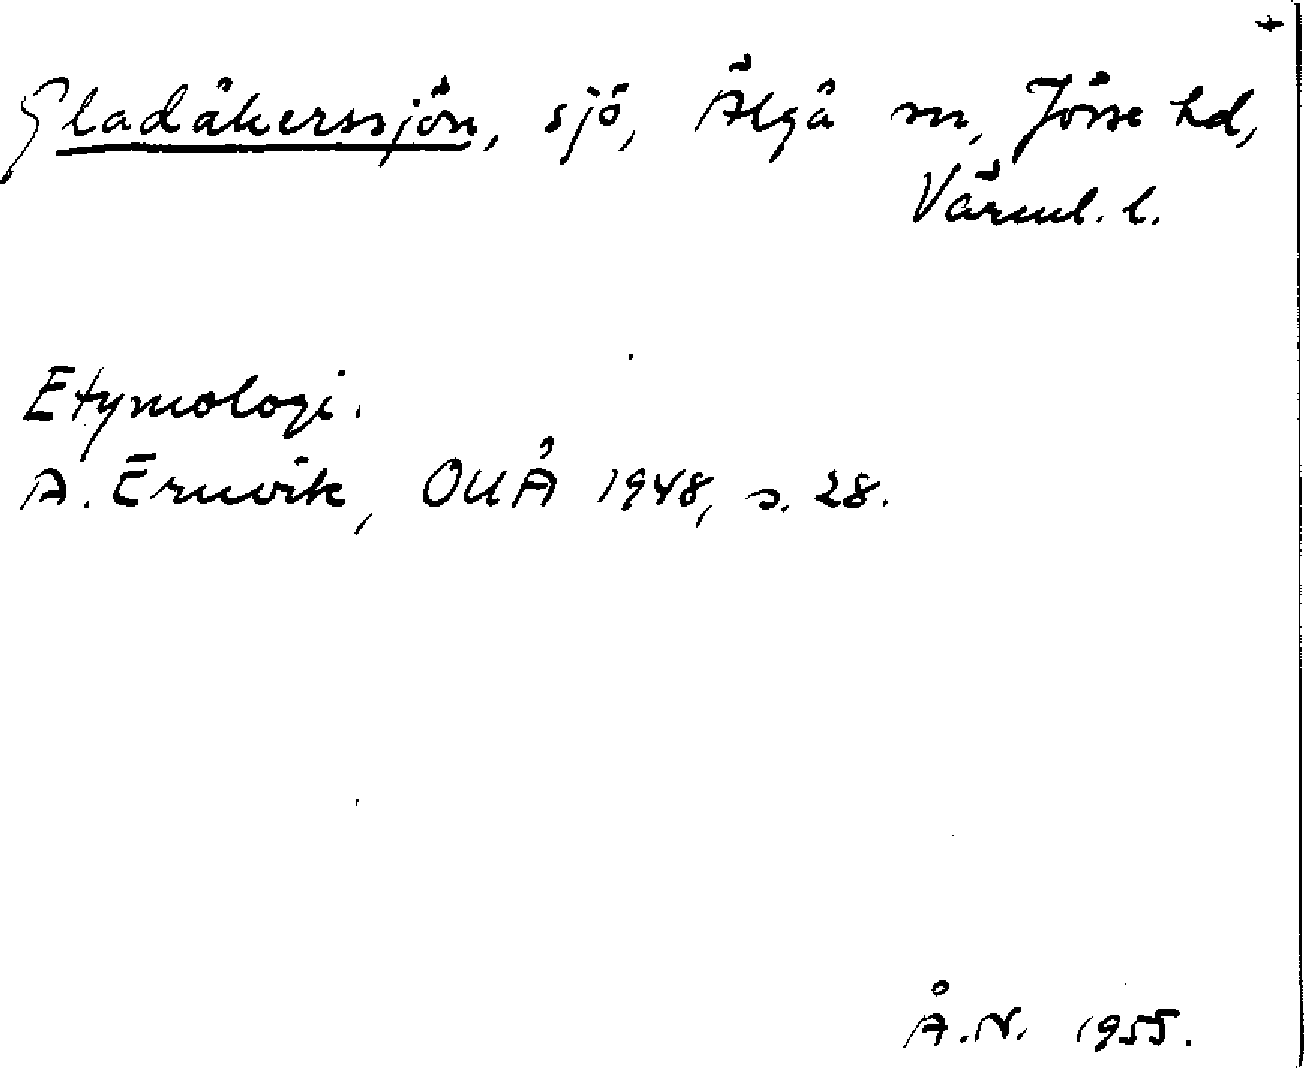 +
Gladåkerssjön, sjö, Älgå sn, Jösse hd,
Värml. l.
Etymologi.
A. Ernvik, OUÅ 1948, s. 28.
Å.N. 1955.